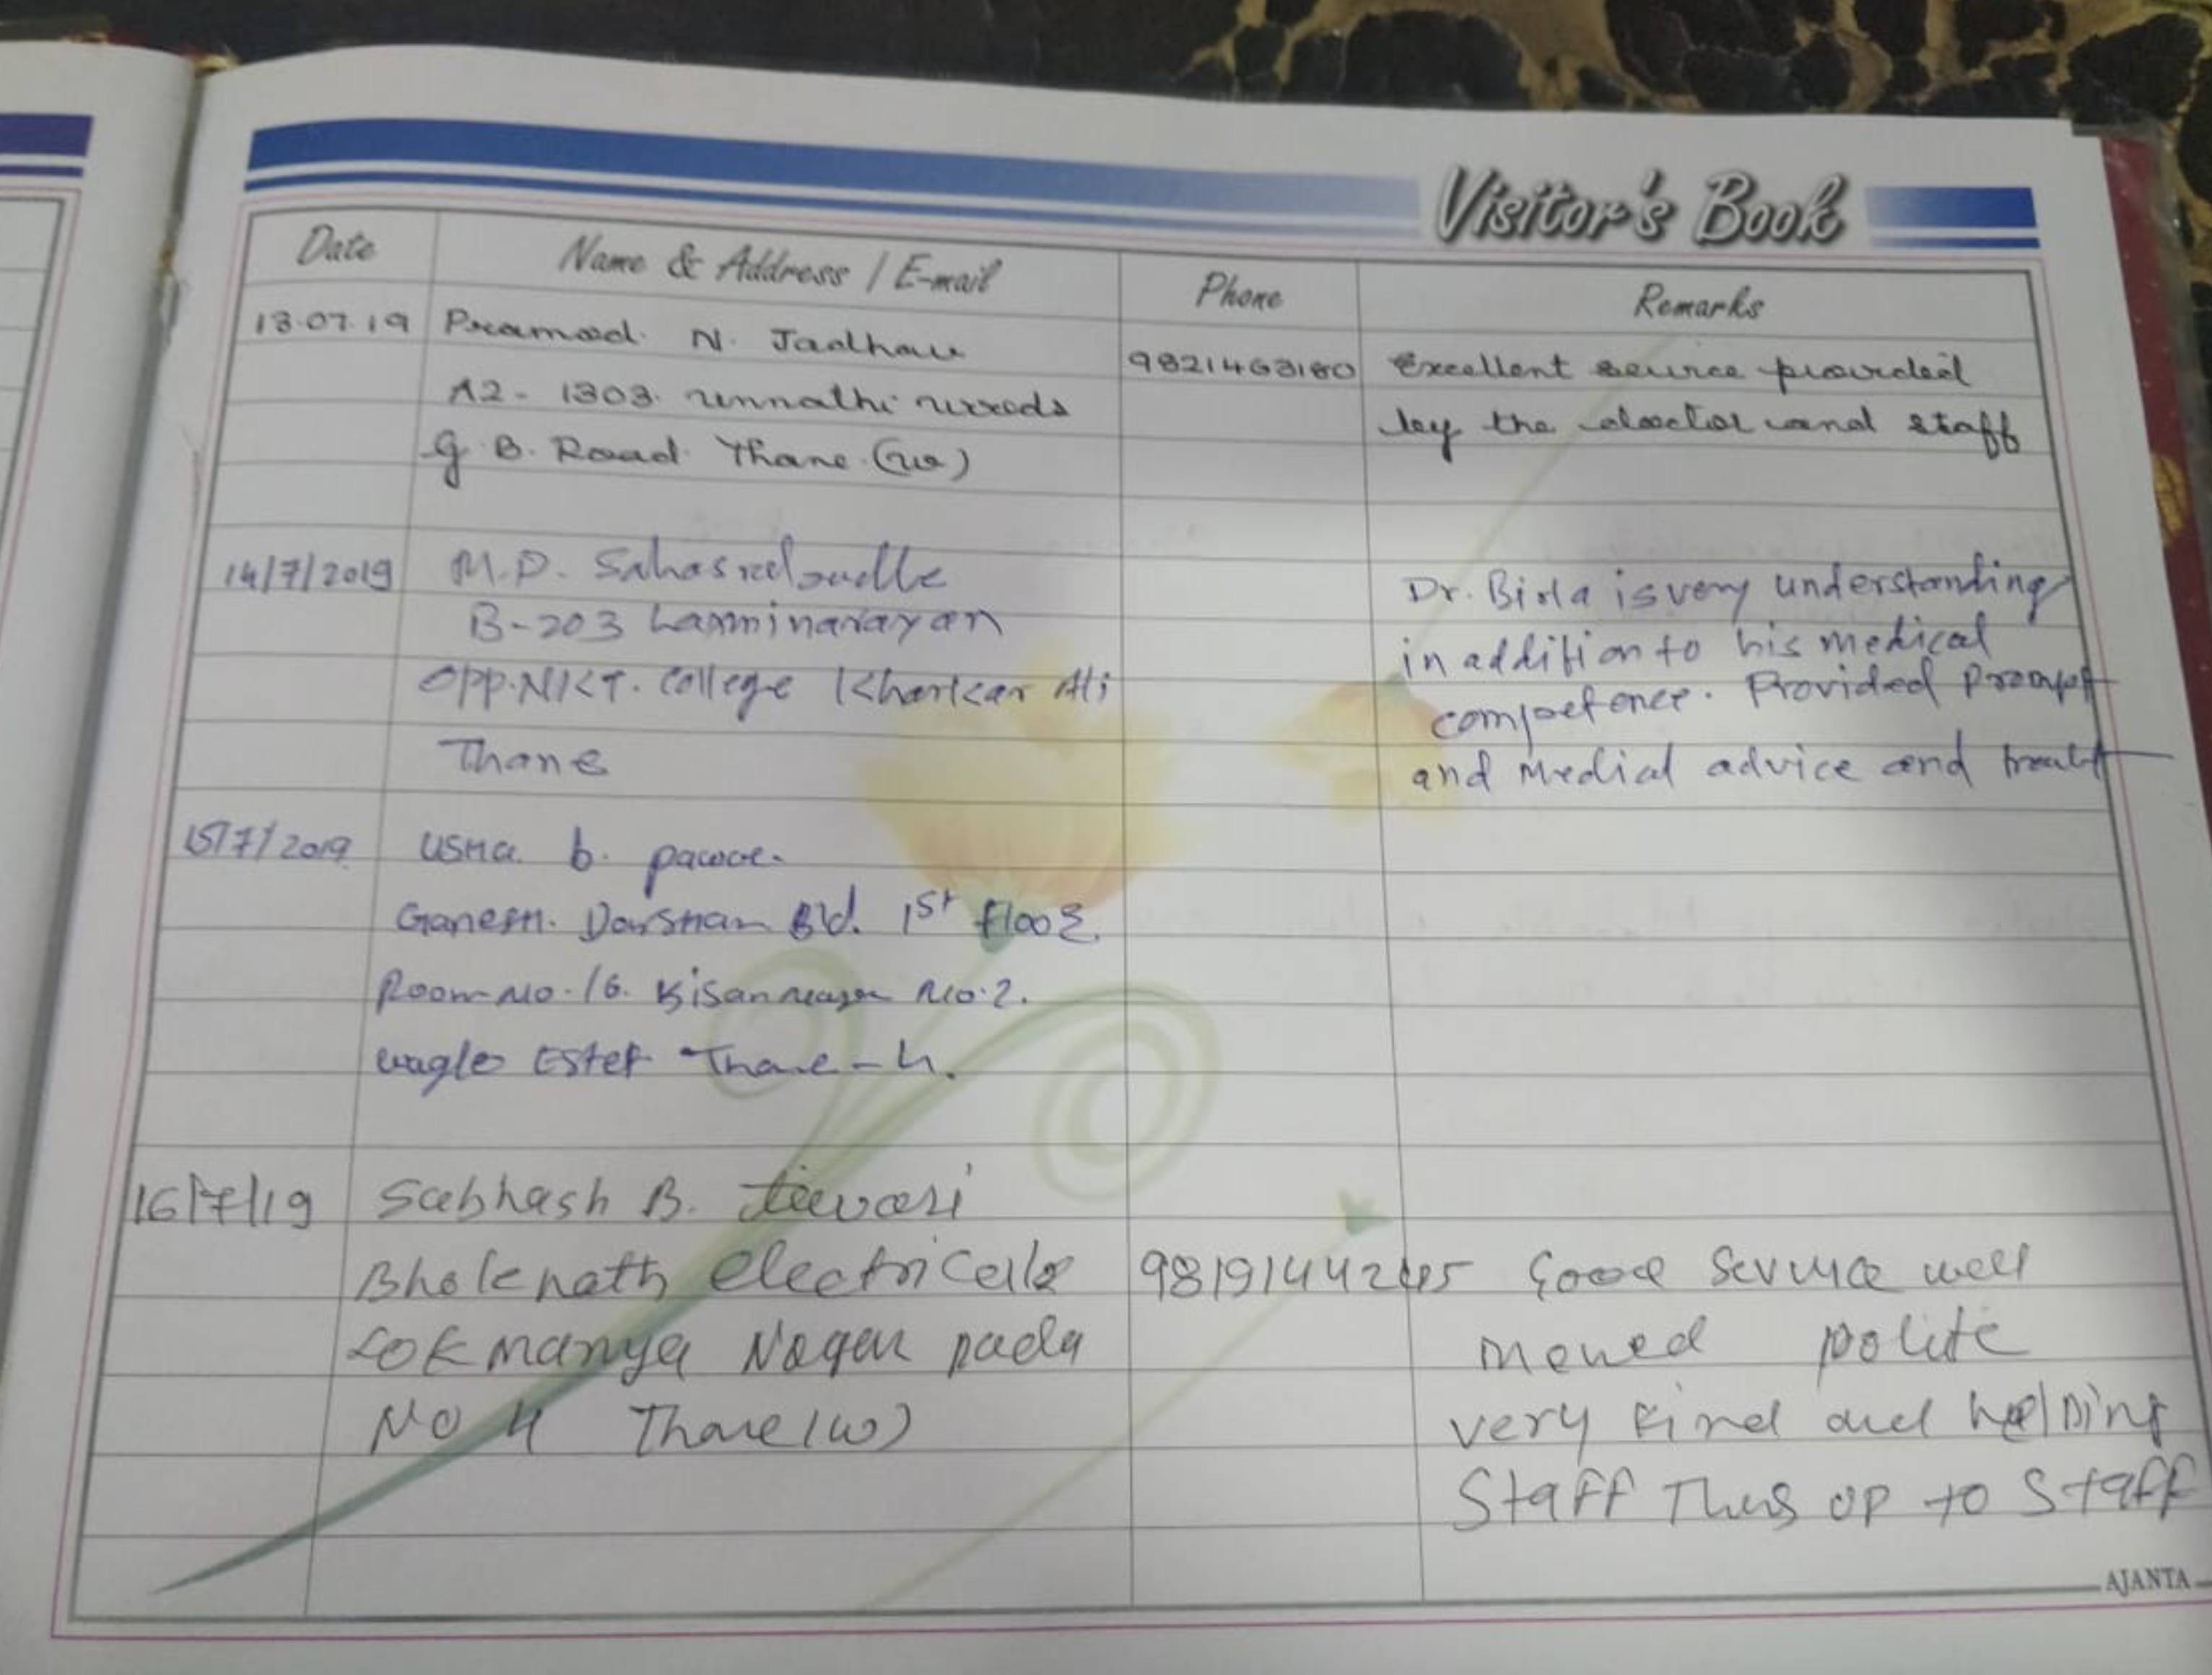 Visitor's Book
Date Name & Address / E-mail Phone Remarks
13.07.19 Pramod. N. Jadhav 9821463180 Excellent service provided
A2- 1303. unnathi woods by the doctor and staff
G.B. Road. Thane.(w)
14/7/2019 M.D. Dr. Birla is very understanding
B-203 Laxminarayan in addition to his medical
Opp.NKT. College Kharkar Ali competence. Provided Prompt
Thane and Medial advice and
15/7/2019 USHa. b. pawar.
GanesH. DarsHan Bld. 1st floor.
Room No.16. Kisannagar No.2.
wagle Estet Thane-4.
16/7/19 Subhash B. tiwari
Bholenath electricals 9819144245 Good Service well
Lokmanya Nagar pada polite
NO 4 Thane (w) very kind and helping
Staff Thus up to Staff
AJANTA